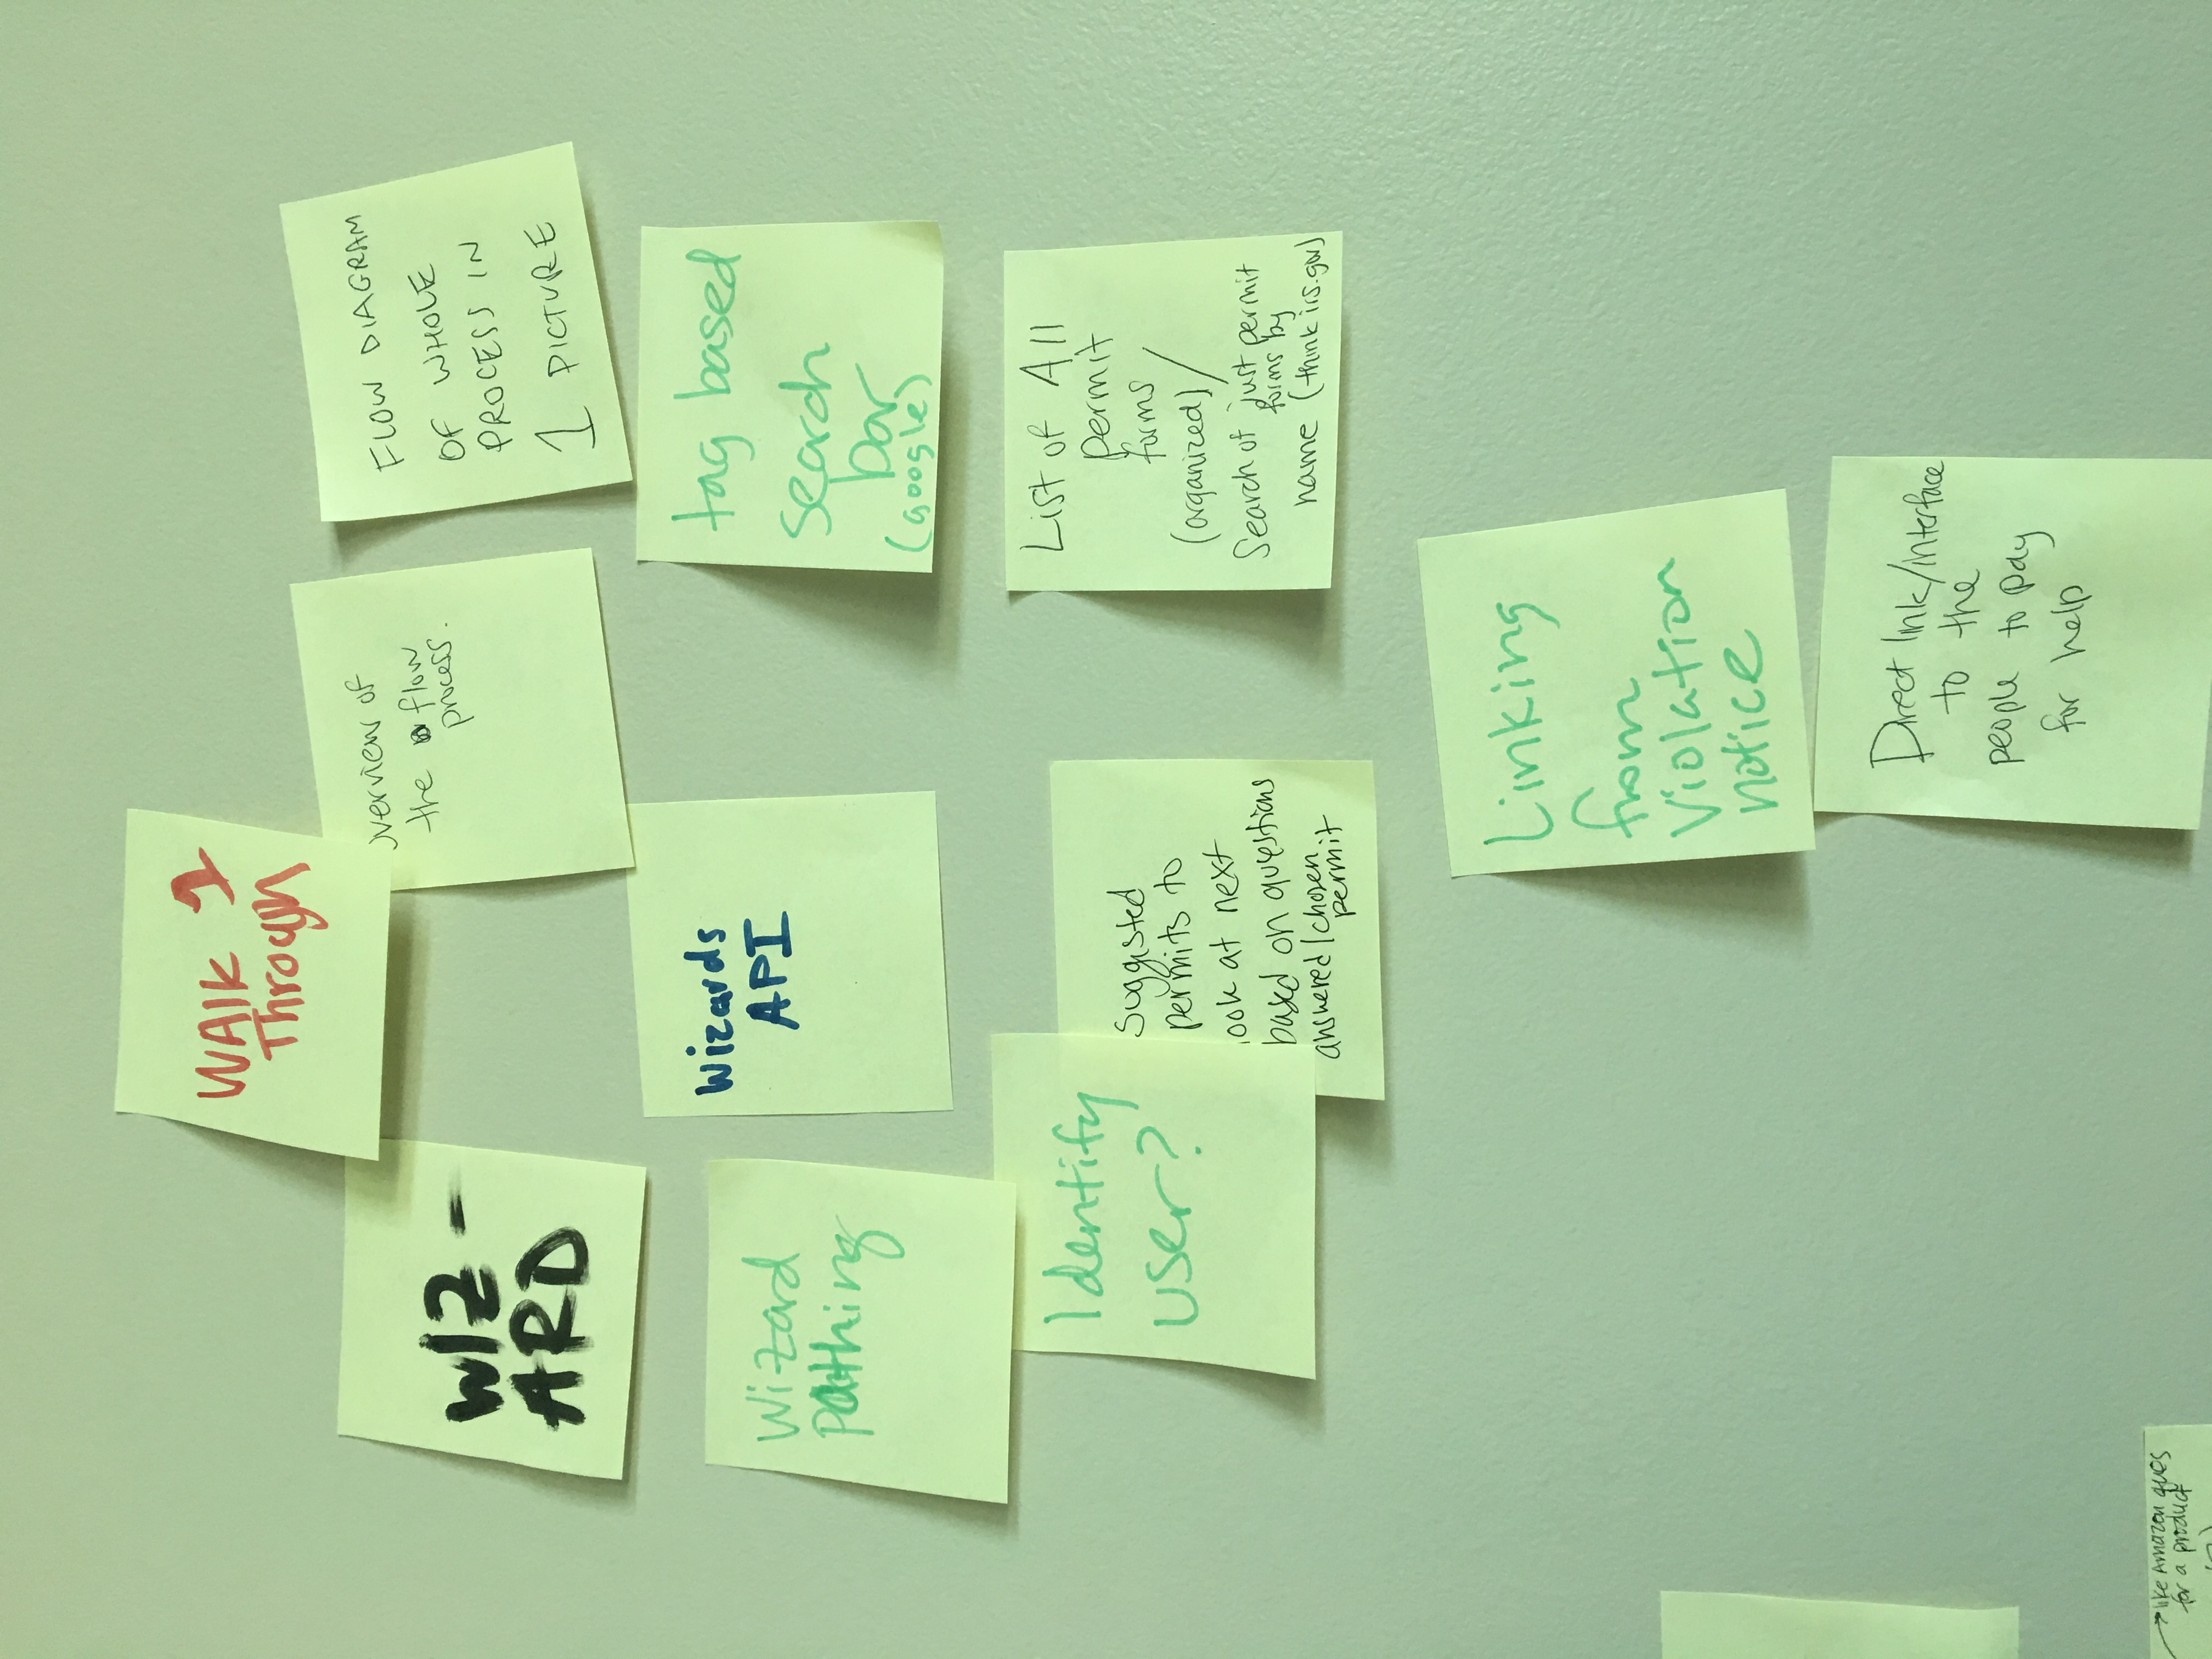 WAlk 1
Through
WIZ-
ARD
overview of
the flow
process.
FLOW DIAGRAM
OF WHOLE
PROCESS IN
1 PICTURE
Wizard
Pathing
Wizards
API
tag based
search
bar
(google)
Identify
user?
Suggested
permits to
look at next
based on questions
answered/chosen
permit
List of All
permit
forms
(organized)/
Search of just permit
forms by
name (think irs.gov)
Linking
from
Violation
notice
Direct link/interface
to the
people to pay
for help
→like Amazon ques
for a product